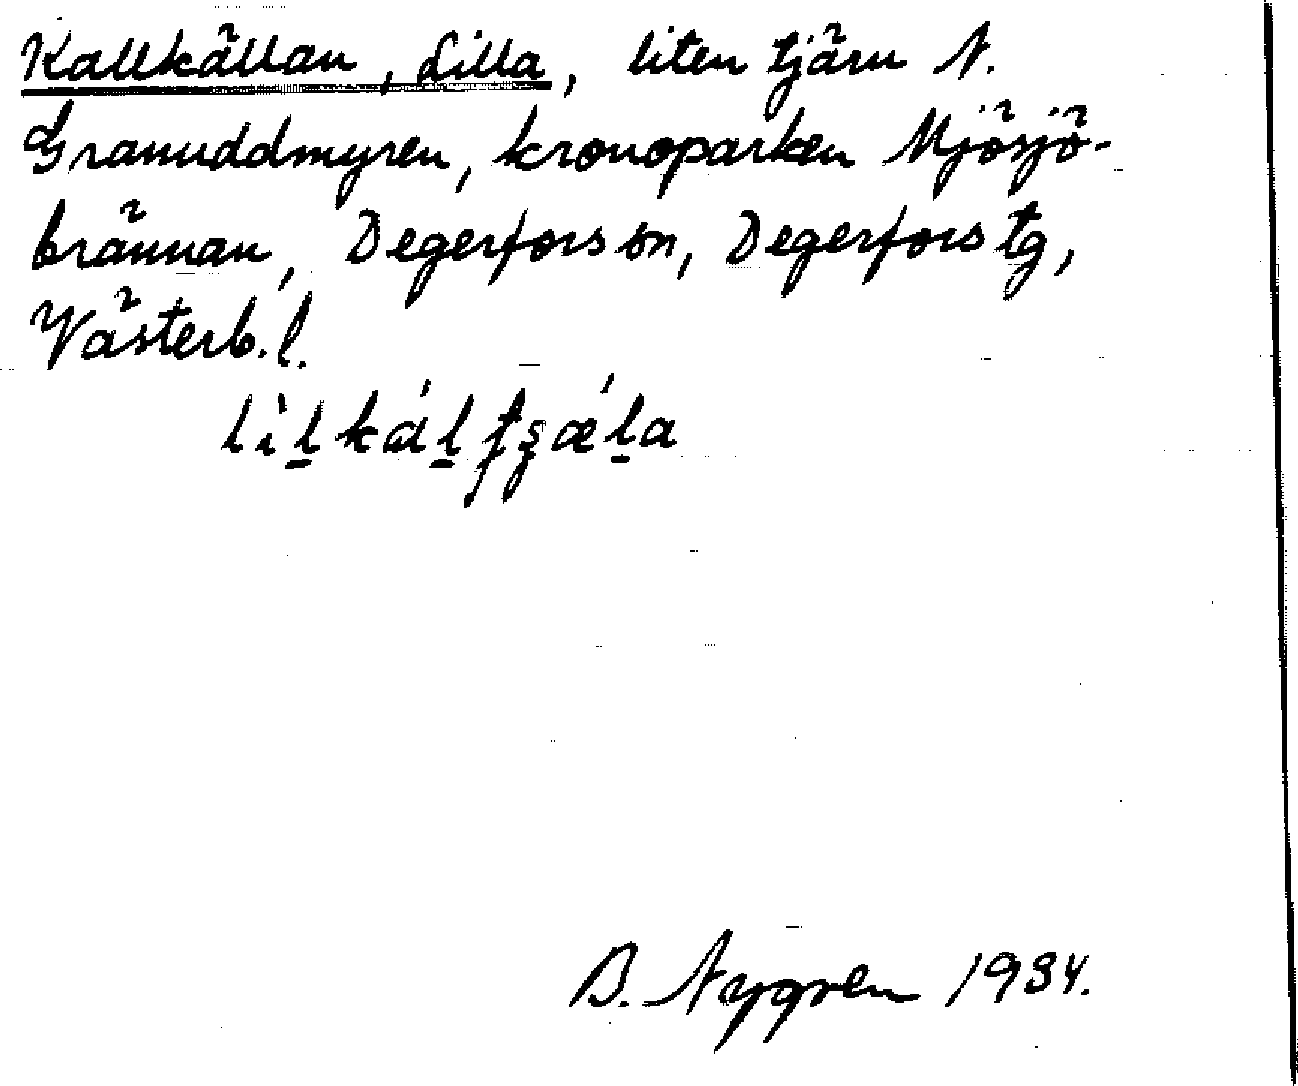 Kallkällan, Lilla, liten tjärn N.
Granuddmyren, kronoparken Mjösjö-
brännan, Degerfors sn, Degerfors tg,
Västerb. l.
lìl̲ kál̲ tʂǽl̲a
B. Nygren 1934.